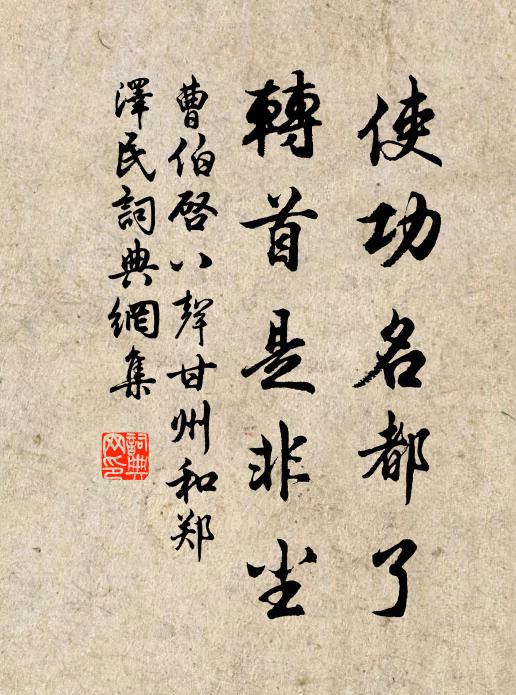 使功名都了
轉首是非尘
曹伯啓八聲甘州和郑
澤民詞典網集
詞典
网印